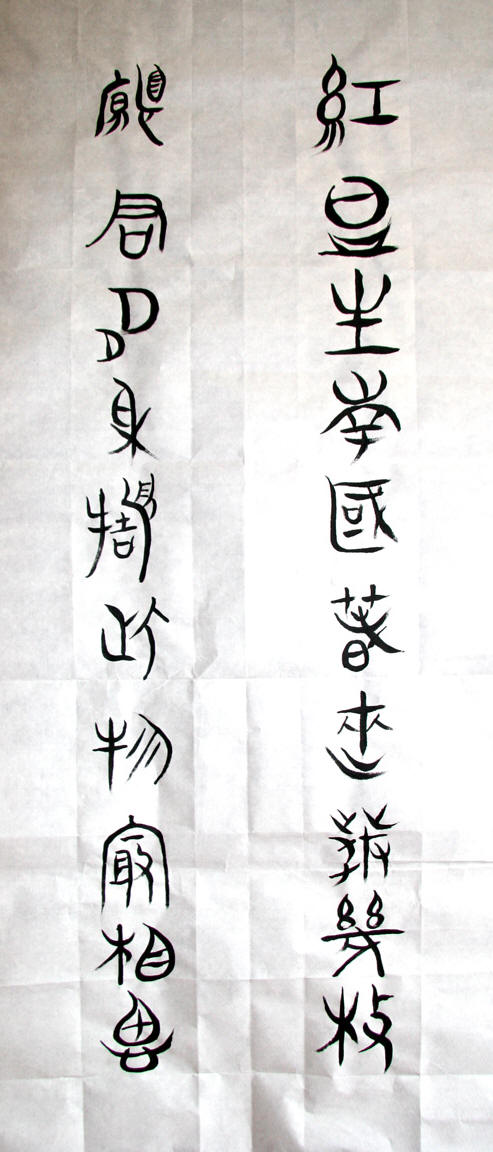 紅豆生南國春來發幾枝
願君多采擷此物最相思